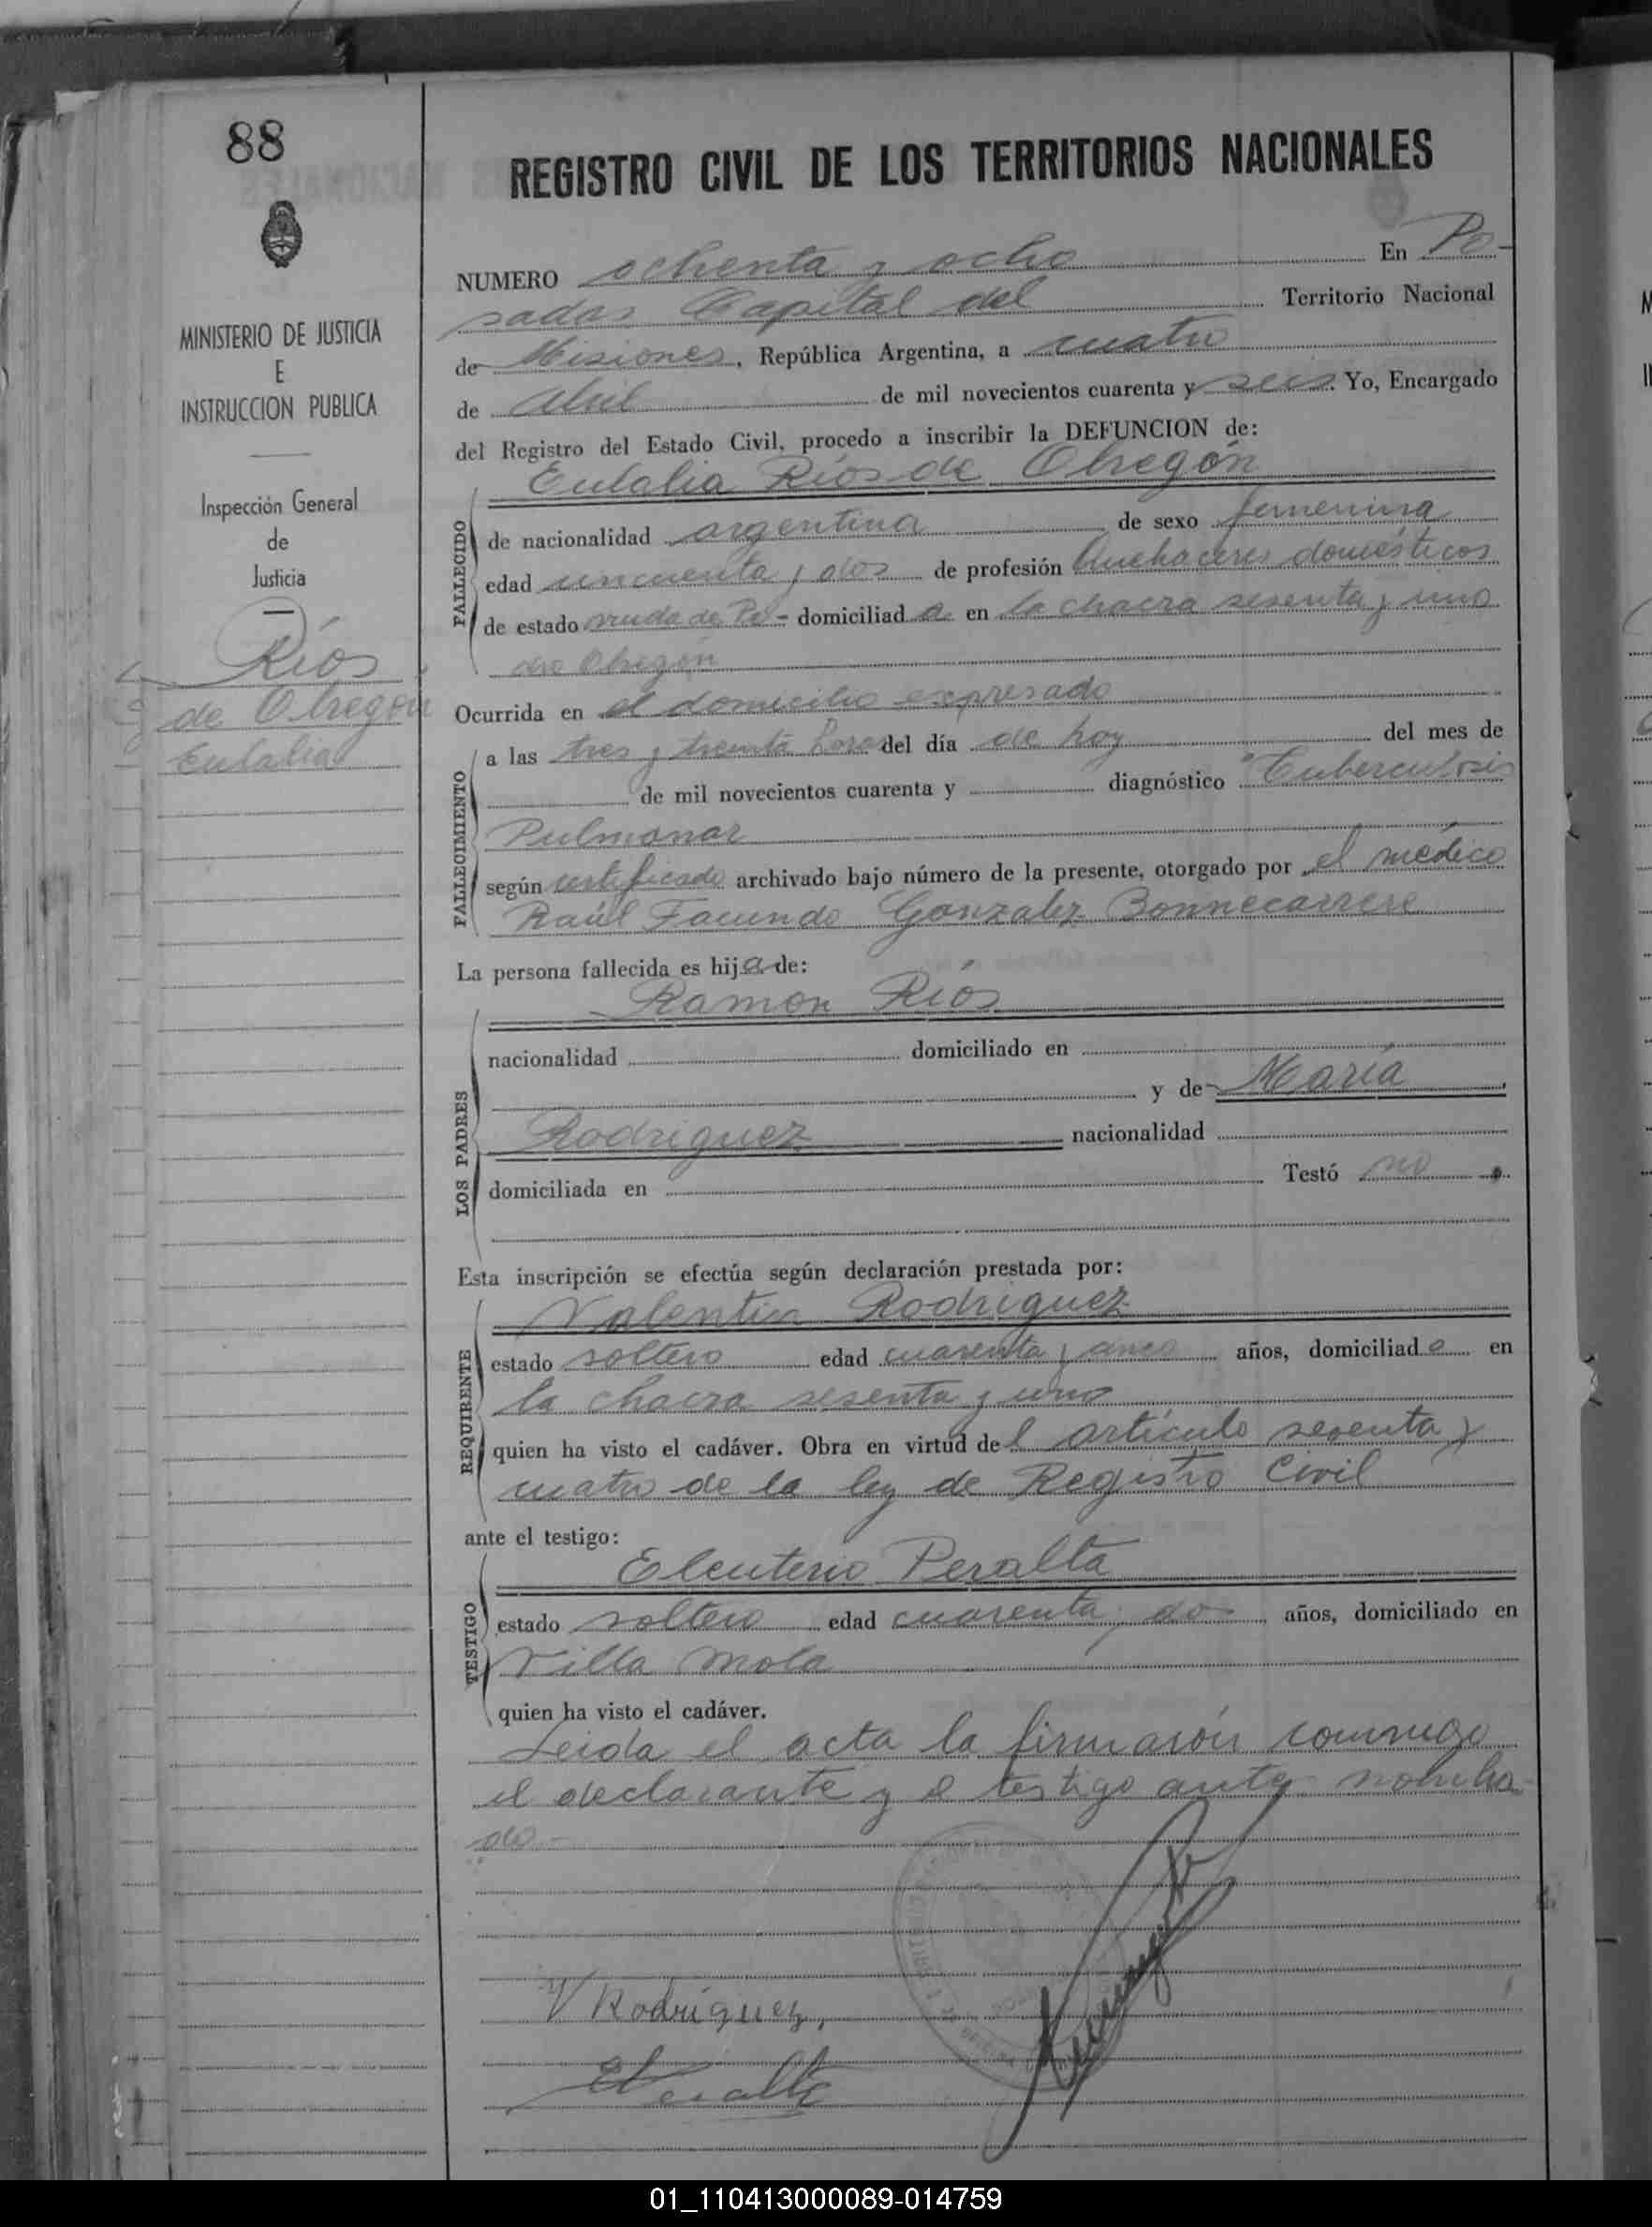 88
REGISTRO CIVIL DE LOS TERRITORIOS NACIONALES
MINISTERIO DE JUSTICIA
E
INSTRUCCION PUBLICA
Inspección General
de
Justicia
Ríos
de Obregón
Eulalia
NUMERO ochenta y ocho En Po-
sadas Capital del Territorio Nacional
de Misiones, República Argentina, a cuatro
de Abril de mil novecientos cuarenta y seis. Yo, Encargado
del Registro del Estado Civil, procedo a inscribir la DEFUNCION de:
Eulalia Ríos de Obregón
FALLECIDO
de nacionalidad argentina de sexo femenina
edad cincuenta y dos de profesión Quehaceres domésticos
de estado viuda de Pe- domiciliad a en la chacra sesenta y uno
dro Obregón
Ocurrida en el domicilio expresado
FALLECIMIENTO
a las tres y treinta horas del día de hoy del mes de
de mil novecientos cuarenta y diagnóstico Tuberculosis
Pulmonar
según certificado archivado bajo número de la presente, otorgado por el médico
Raúl Facundo Gonzalez Bonnecarrere
La persona fallecida es hija de:
LOS PADRES
Ramon Ríos
nacionalidad domiciliado en
y de María
Rodriguez nacionalidad
domiciliada en Testó no
Esta inscripción se efectúa según declaración prestada por:
REQUIRENTE
Valentin Rodriguez
estado soltero edad cuarenta y cinco años, domiciliado en
la chacra sesenta y uno
quien ha visto el cadáver. Obra en virtud del artículo sesenta y
cuatro de la ley de Registro Civil
ante el testigo:
TESTIGO
Eleuterio Peralta
estado soltero edad cuarenta y dos años, domiciliado en
Villa Mola
quien ha visto el cadáver.
Leída el acta la firmarón conmigo
el declarante y el testigo ante nombra-
do-
V Rodríguez,
EPeralta
01_110413000089-014759